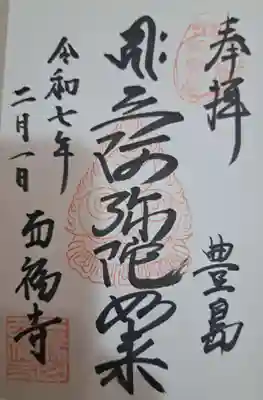 奉拝
豊島
阿弥陀如来
令和七年
二月一日
西福寺